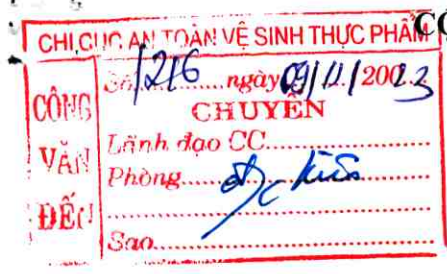 CHI CỤC AN TOÀN VỆ SINH THỰC PHẨM
CÔNG VĂN ĐẾN
Số 1216 ngày 09/11/2023
CHUYỂN
Lãnh đạo CC
Phòng
Sao